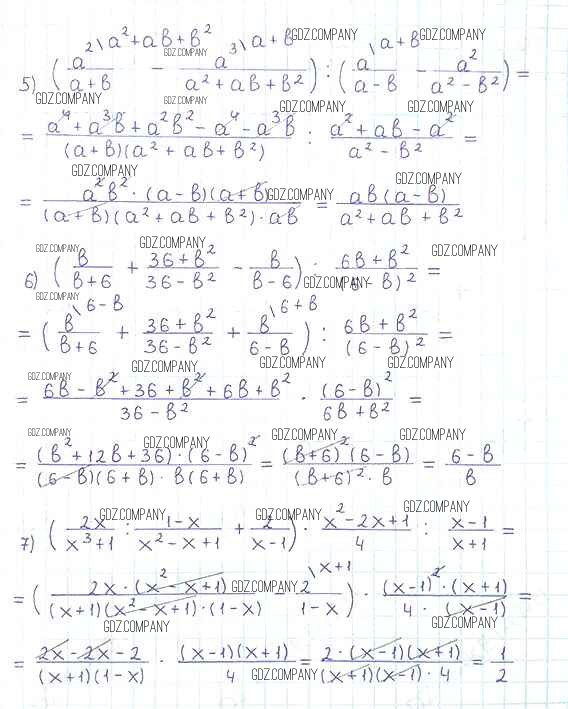 5) (a/(a+b) \a²+ab+b² − a³/(a²+ab+b²) \a+b) : (a/(a−b) \a+b − a²/(a²−b²)) =
= (a⁴+a³b+a²b²−a⁴−a³b)/((a+b)(a²+ab+b²)) : (a²+ab−a²)/(a²−b²) =
= (a²b²·(a−b)(a+b))/((a+b)(a²+ab+b²)·ab) = (ab(a−b))/(a²+ab+b²)
6) (b/(b+6) + (36+b²)/(36−b²) − b/(b−6)) : (6b+b²)/(6−b)² =
= (b/(b+6) \6−b + (36+b²)/(36−b²) + b/(6−b) \6+b) : (6b+b²)/(6−b)² =
= (6b−b²+36+b²+6b+b²)/(36−b²) · (6−b)²/(6b+b²) =
= ((b²+12b+36)·(6−b)²)/((6−b)(6+b)·b(6+b)) = ((b+6)²(6−b))/((b+6)²·b) = (6−b)/b
7) (2x/(x³+1) : (1−x)/(x²−x+1) + 2/(x−1)) · (x²−2x+1)/4 : (x−1)/(x+1) =
= (2x·(x²−x+1)/((x+1)(x²−x+1)·(1−x)) − 2/(1−x) \x+1) · ((x−1)²·(x+1))/(4·(x−1)) =
= (2x−2x−2)/((x+1)(1−x)) · ((x−1)(x+1))/4 = (2·(x−1)(x+1))/((x+1)(x−1)·4) = 1/2
GDZ.COMPANY